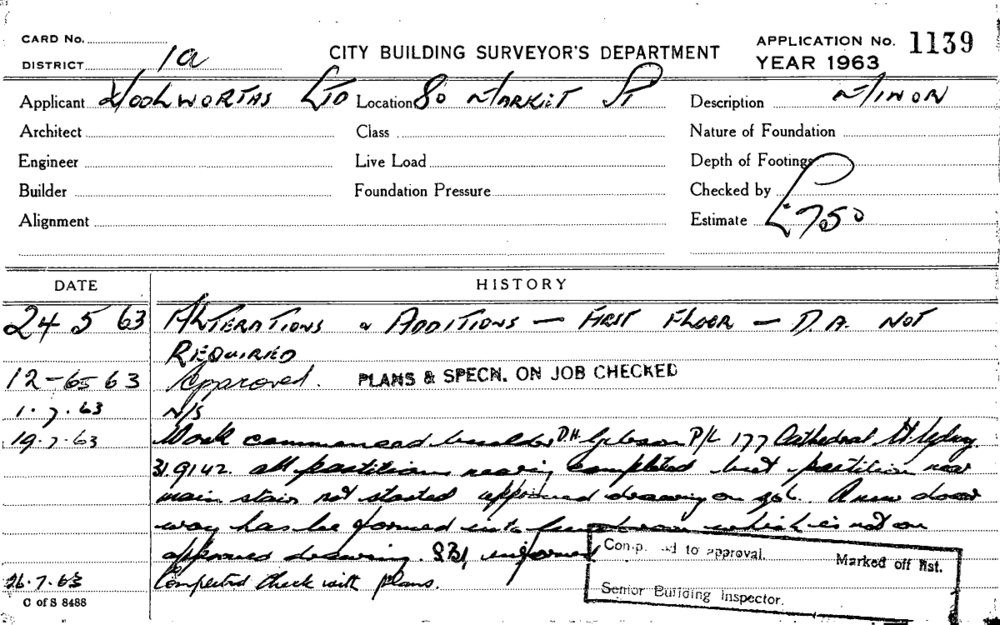 CARD No.
DISTRICT 1a
CITY BUILDING SURVEYOR'S DEPARTMENT
APPLICATION No. 1139
YEAR 1963
Applicant Woolworths Ltd Location 80 Market St Description Minor
Architect Class Nature of Foundation
Engineer Live Load Depth of Footings
Builder Foundation Pressure Checked by
Alignment Estimate £750
DATE HISTORY
24 5 63 Alterations & Additions — First Floor — D.A. Not
Required
12-6 63 Approved. PLANS & SPECN. ON JOB CHECKED
1.7.63 N/S
19.7.63 Work commenced builder D.H. Gibson P/L 177 Cathedral St. Sydney
319142. all partitions nearing completed but partition near
main stair not started approved drawing on job. A new door
way has be formed into which is not on
approved drawing. informed
26.7.63 Completed Check with Plans.
to approval. Marked off list.
Senior Building Inspector.
C of S 8488